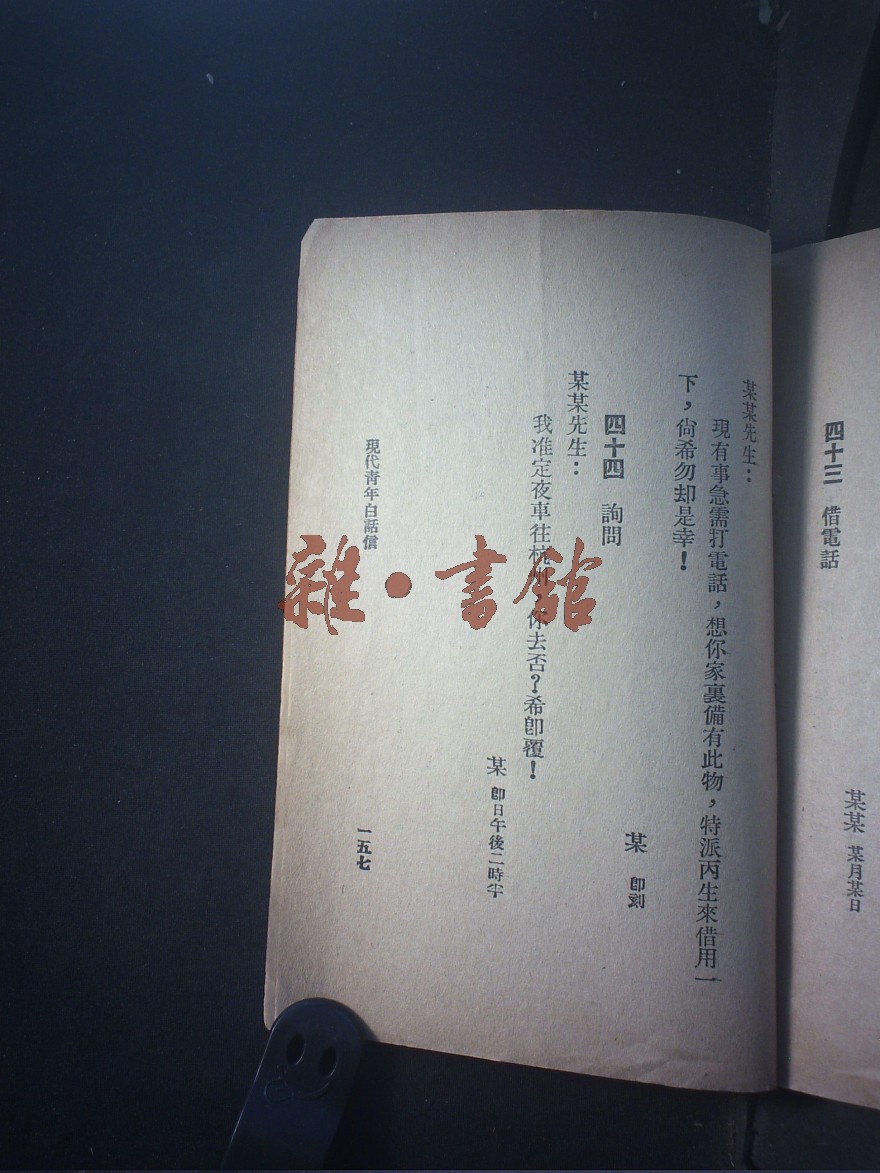 某某 某月某日
四十三 借電話
某某先生：
現有事急需打電話，想你家裏備有此物，特派丙生來借用一
下，尙希勿却是幸！
某 卽刻
四十四 詢問
某某先生：
我准定夜車往杭州，你去否？希卽覆！
某 卽日午後二時半
現代靑年白話信
一五七
雜·書館